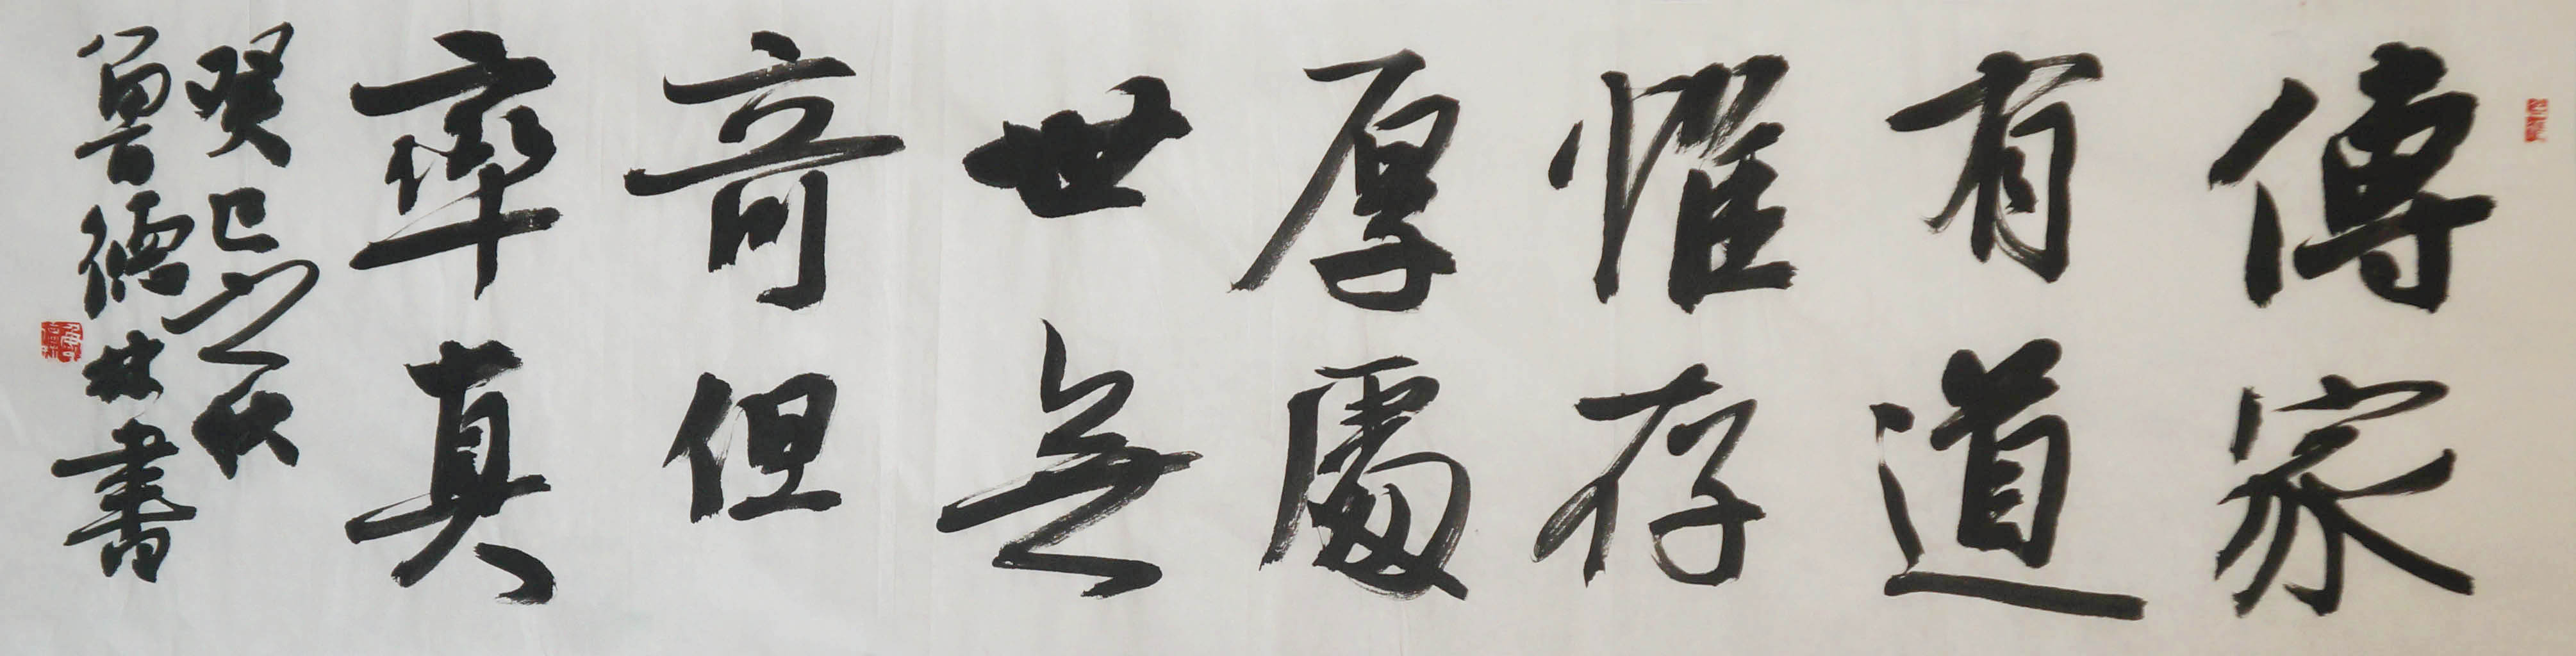 傳家
有道
惟存
厚處
世無
奇但
率真
癸巳之秋
魯德林書